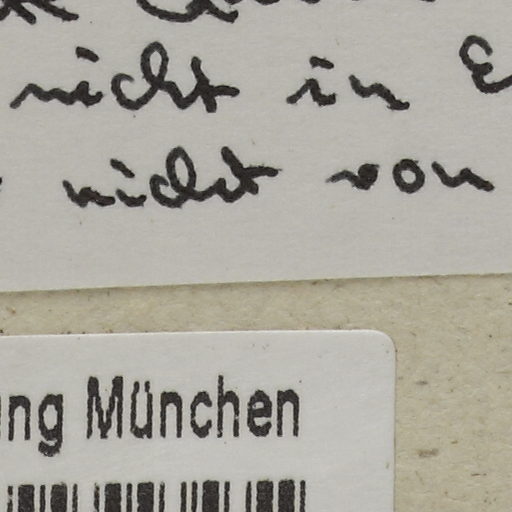 nicht in
nicht von
ung München